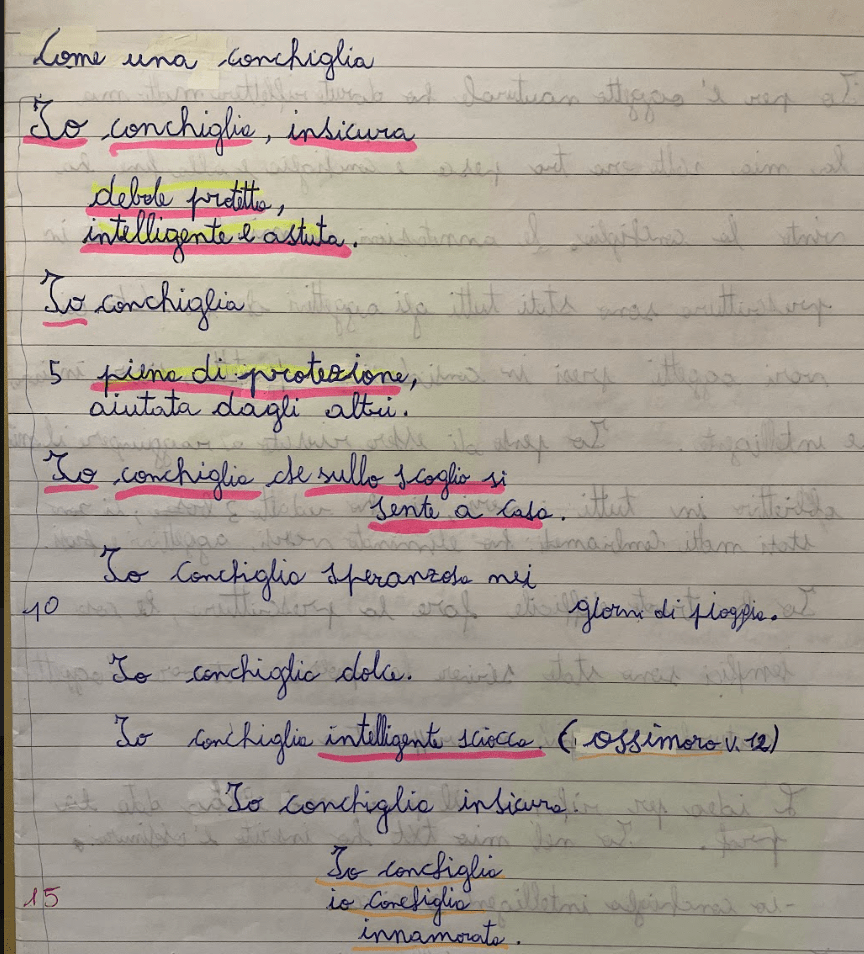 Come una conchiglia
Io conchiglia, insicura
debole protetta,
intelligente e astuta.
Io conchiglia
5 piena di protezione,
aiutata dagli altri.
Io conchiglia che sullo scoglio si
sente a casa.
Io conchiglia speranzosa nei
10 giorni di pioggia.
Io conchiglia dolce.
Io conchiglia intelligente sciocca. (ossimoro v. 12)
Io conchiglia insicura.
Io conchiglia
15 io conchiglia
innamorata.